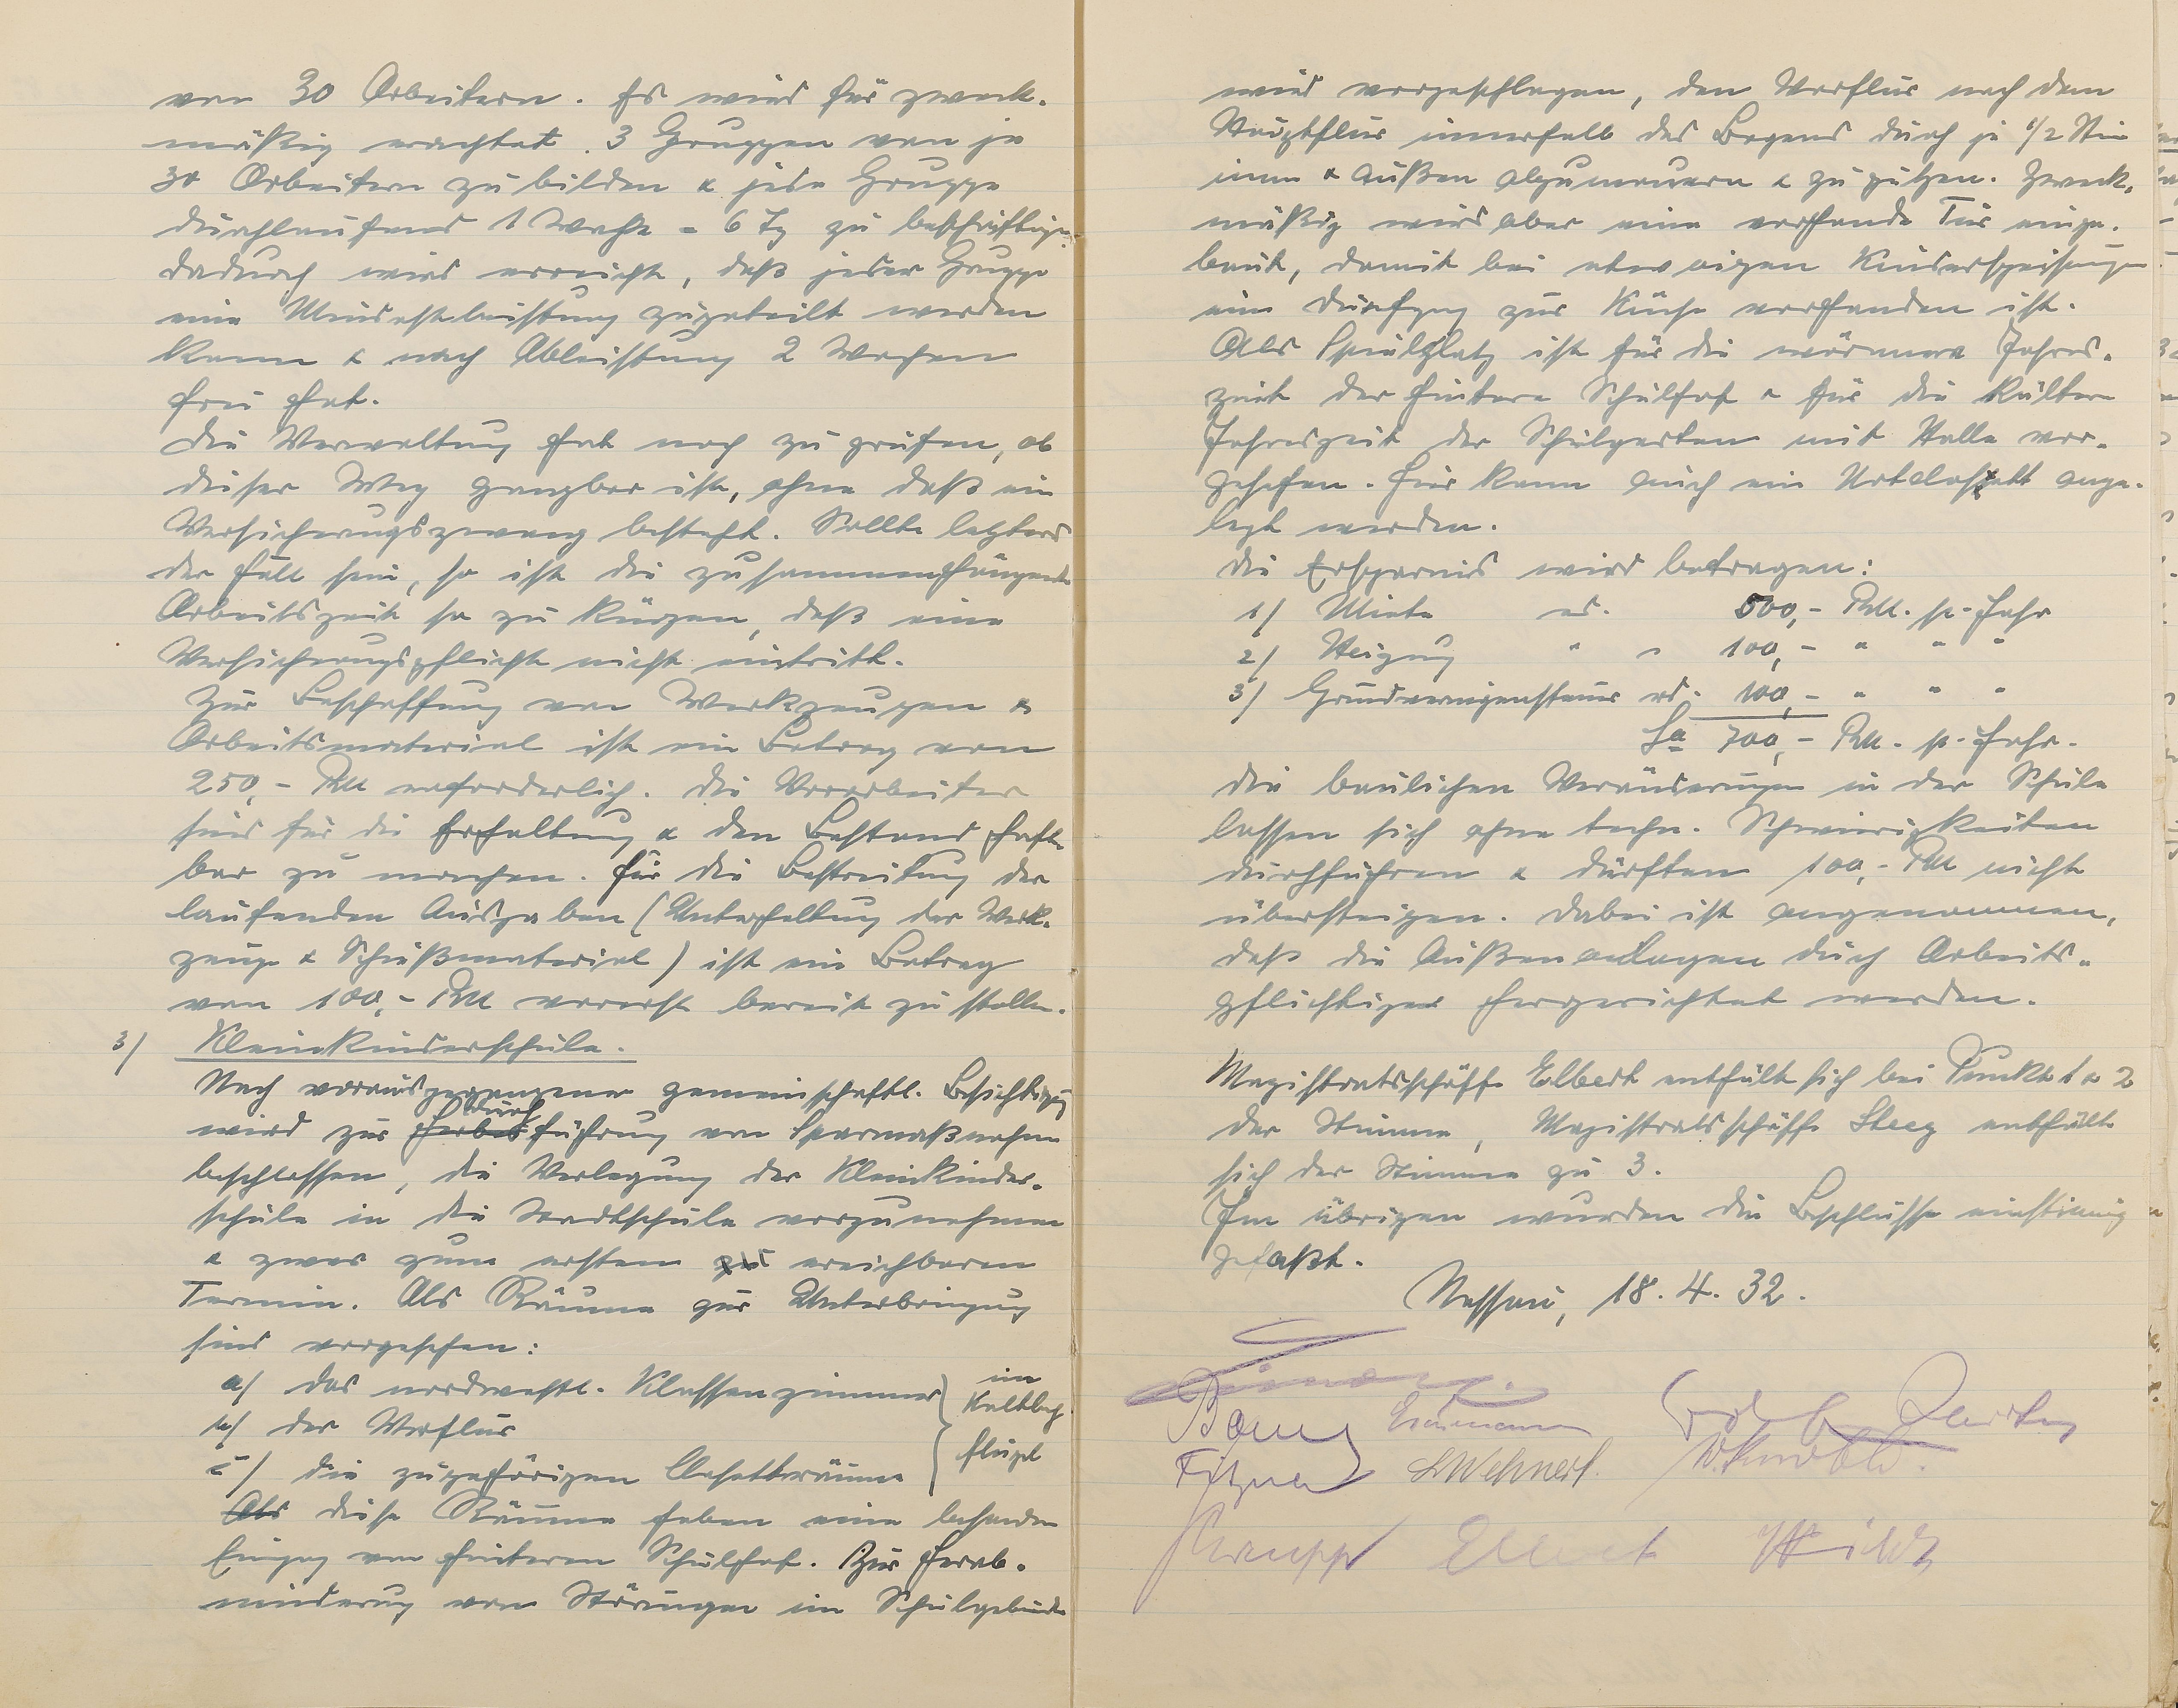 von 30 Arbeitern. Es wird für zweck-
mäßig erachtet. 3 Gruppen von je
30 Arbeitern zu bilden & jede Gruppe
durchlaufend 1 Woche = 6 Tg zu beschäftigen.
Dadurch wird erreicht, daß jeder Gruppe
eine Mindestleistung zugeteilt werden
kann & nach Ableistung 2 Wochen
frei hat.
Die Verwaltung hat noch zu prüfen, ob
dieser Weg gangbar ist, ohne daß ein
Versicherungszwang besteht. Sollte letzteres
der Fall sein, so ist die zusammenhängende
Arbeitszeit so zu kürzen, daß eine
Versicherungspflicht nicht eintritt.
Zur Beschaffung von Werkzeugen &
Arbeitsmaterial ist ein Betrag von
250,- RM erforderlich. Die Vorarbeiter
sind für die Erhaltung & den Bestand haft-
bar zu machen. Für die Bestreitung der
laufenden Ausgaben (Unterhaltung der Werk-
zeuge & Schießmaterial) ist ein Betrag
von 100,- RM vorerst bereit zu stellen.
3/ Kleinkinderschule.
Nach vorausgegangener gemeinschaftl. Besichtigung
wird zur durchführung von Sparmaßnahmen
beschlossen, die Verlegung der Kleinkinder-
schule in die Stadtschule vorzunehmen
& zwar zum ersten ereichbaren
Termin. Als Räume zur Unterbringung
sind vorgesehen:
a/ das nordwestl. Klassenzimmer } im
b/ der Vorflur } Kaltbach
c/ die zugehörigen Closetträume } flügel
Als diese Räume haben eine besonderen
Eingang vom hinteren Schulhof. Zur Herab-
minderung von Störungen im Schulgebäude
wird vorgeschlagen, den Vorflur nach dem
Hauptflur innerhalb des Bogens durch je 1/2 Stein
innen & außen abzumauern & zu putzen. Zweck-
mäßig wird aber eine vorhande Tür einge-
baut, damit bei etwaigen Kinderspeisungen
ein Durchgang zur Küche vorhanden ist.
Als Spielplatz ist für die wärmere Jahres-
zeit der hintere Schulhof & für die kältere
Jahreszeit der Schulgarten mit Halle vor-
gesehen. Hier kann auch ein Notclosett ange-
legt werden.
Die Ersparnis wird betragen:
1/ Miete rd. 500,- RM. p. Jahr
2/ Heizung " " 100,- " " "
3/ Grundvermögensteuer rd. 100,- " " "
Sa 700,- RM. p. Jahr.
Die baulichen Veränderungen in der Schule
lassen sich ohne techn. Schwierigkeiten
durchführen & dürften 100,- RM nicht
übersteigen. Dabei ist angenommen,
daß die Außenanlagen durch Arbeits-
pflichtiger hergerichtet werden.
Magistratsschöffe Elbert enthält sich bei Punkt 1 & 2
der Stimme, Magistratsschöffe Steeg enthält
sich der Stimme zu 3.
Im übrigen wurden die Beschlüsse einstimmig
gefaßt.
Nassau, 18.4.32.
Baum
Wehnert.
W. Knoblo.
Elbert